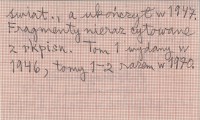 świat., a ukończył w 1947.
Fragmenty nieraz cytowane
z rkpisn. Tom 1 wydany w
1946, tomy 1-2 razem w 1970.